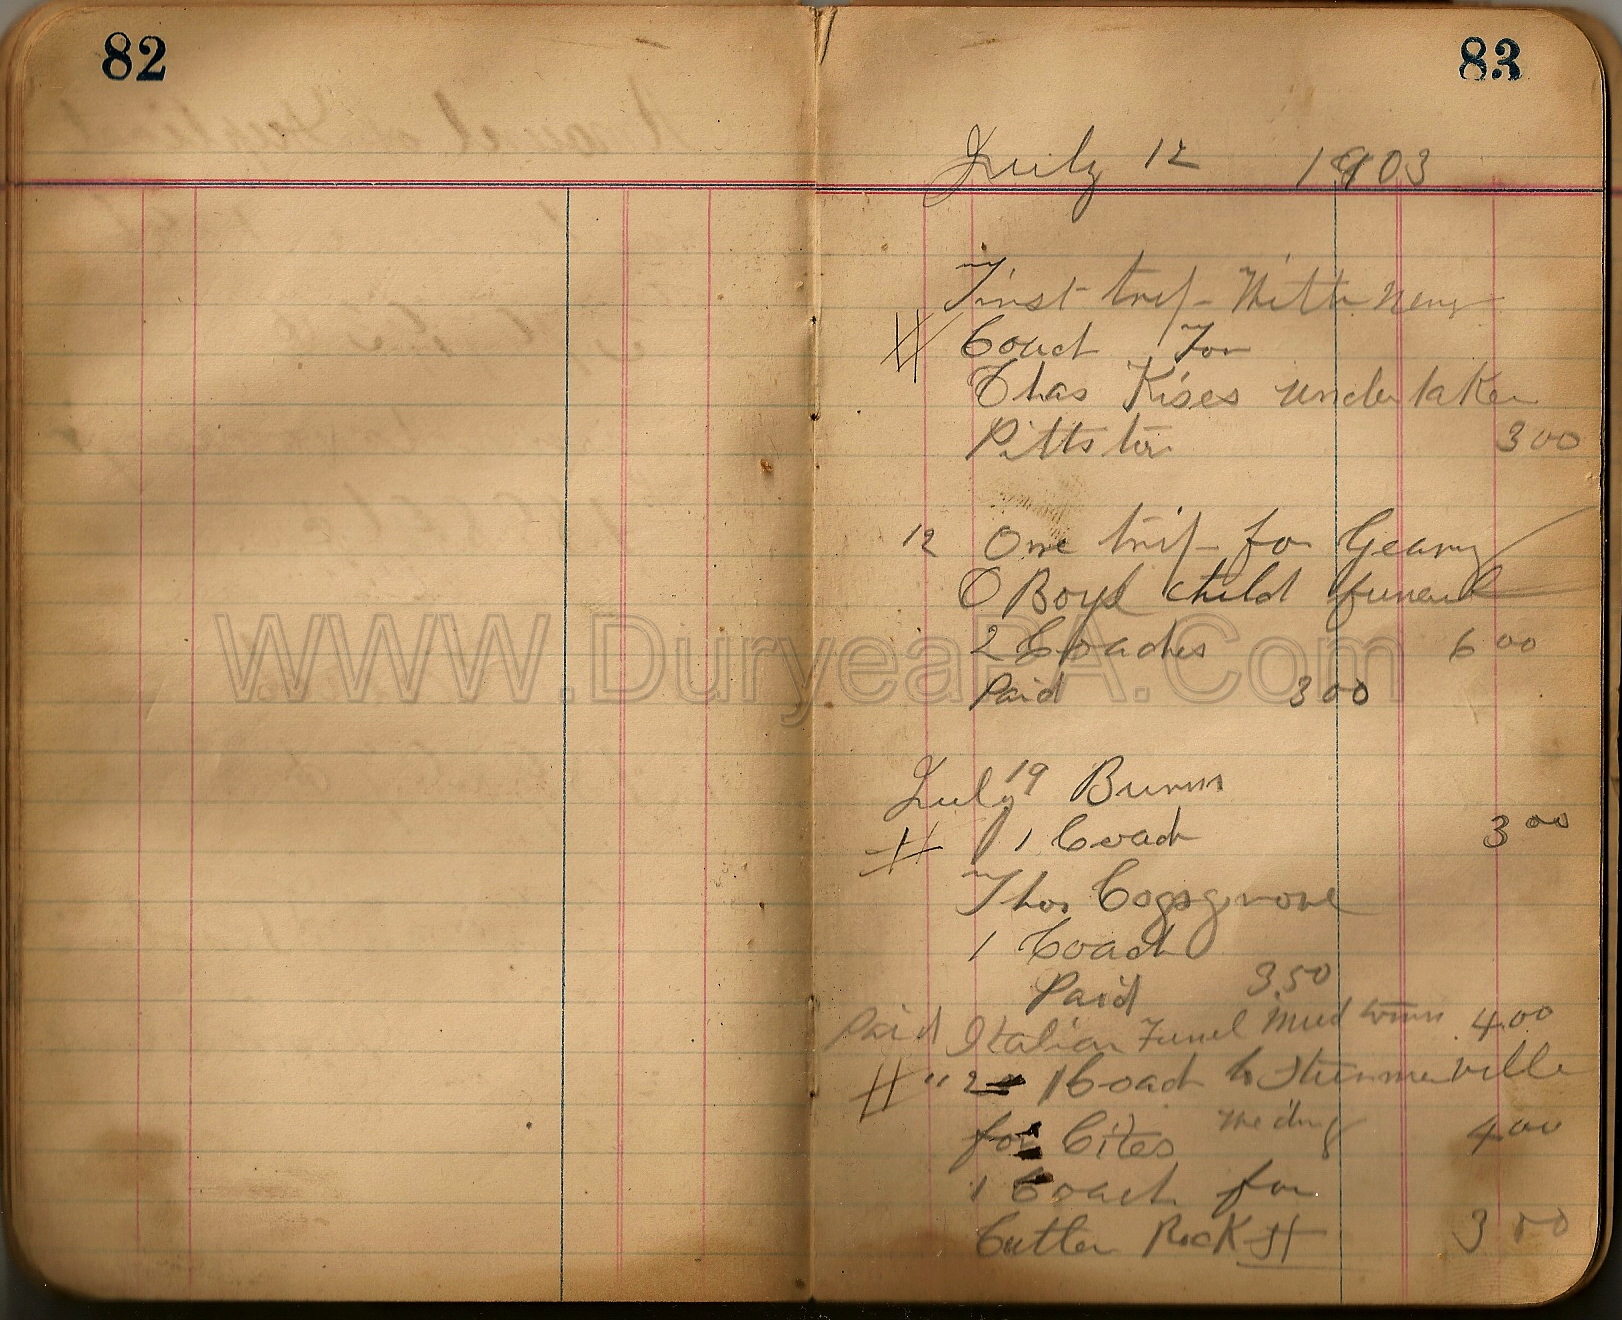 82
83
July 12 1903
First trip With New
Coach For
Chas Kises undertaker
Pittston 3 00
12 One trip for Geary
O Boyl child funeral
2 Coaches 6 00
Paid 3 00
July 19 Burns
1 Coach 3 00
Thos Cogsgrove
1 Coach
Paid 3.50
Paid Italian Funel Mud town 4.00
" 2 1 Coach to Sturmerville
for Cites Weding 4 00
1 Coach for
Cutler Rock St 3 00
WWW.DuryeaPA.Com